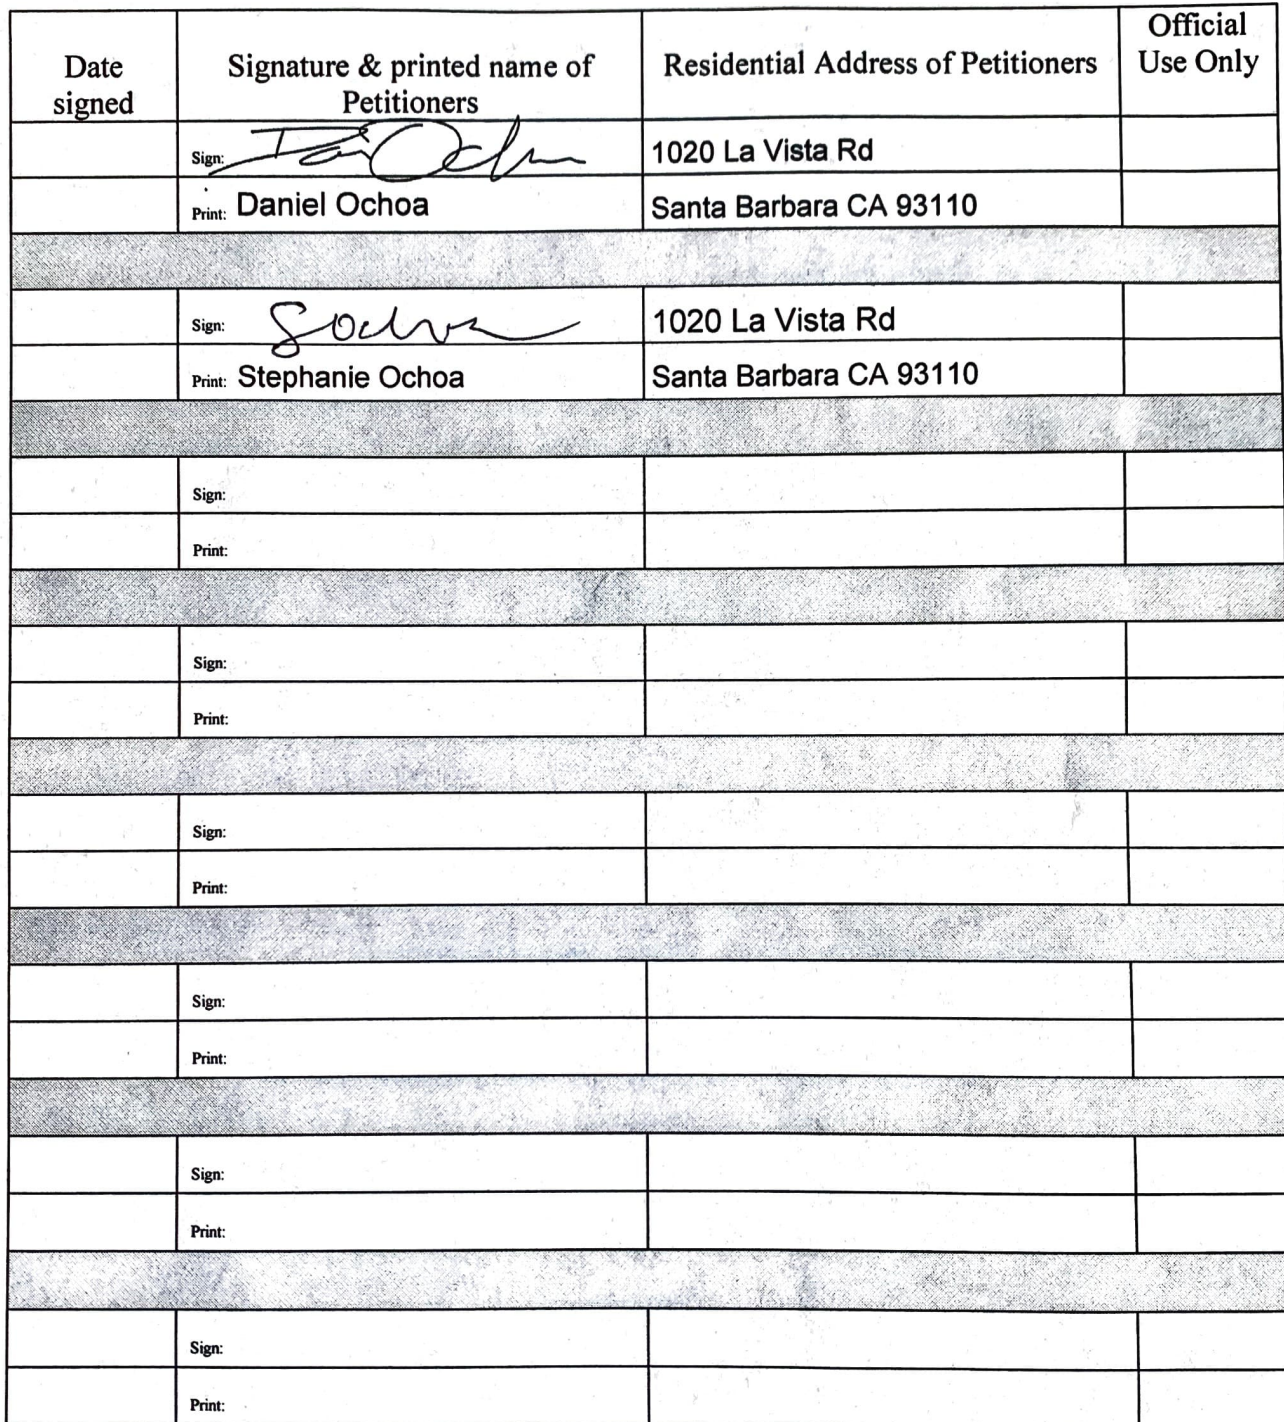 Date signed
Signature & printed name of Petitioners
Residential Address of Petitioners
Official Use Only
Sign: 1020 La Vista Rd
Print: Daniel Ochoa Santa Barbara CA 93110
Sign: SOchoa 1020 La Vista Rd
Print: Stephanie Ochoa Santa Barbara CA 93110
Sign:
Print:
Sign:
Print:
Sign:
Print:
Sign:
Print:
Sign:
Print:
Sign:
Print: